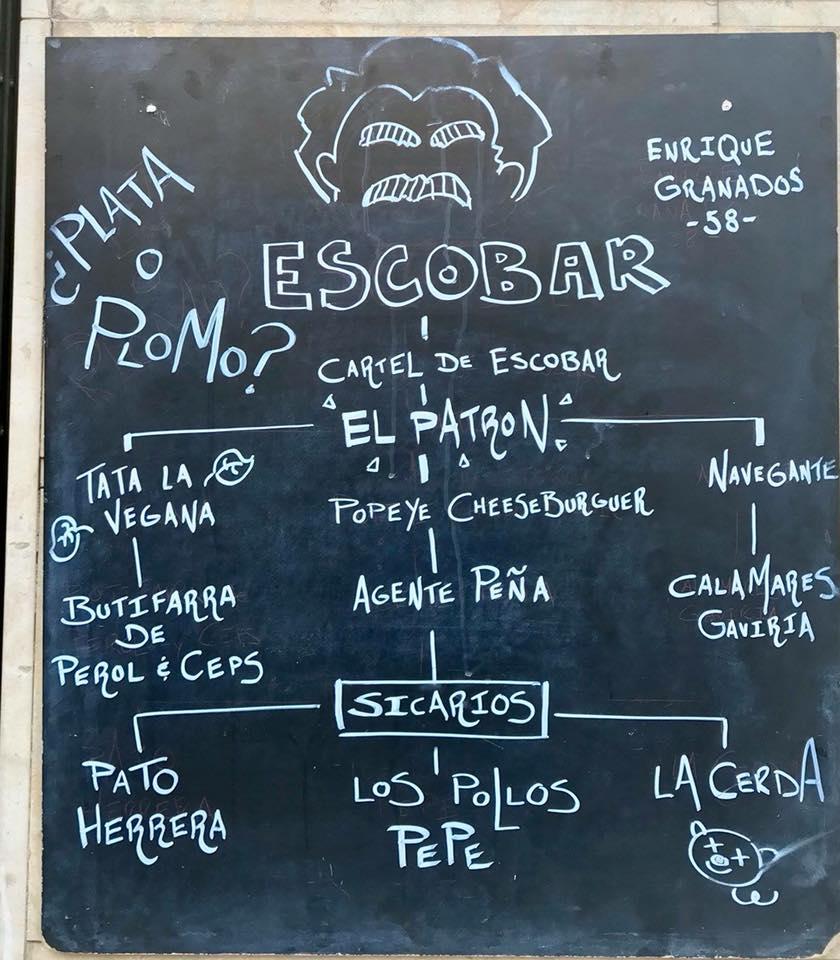 ENRIQUE
GRANADOS
-58-
¿PLATA
O
PLOMO?
ESCOBAR
CARTEL DE ESCOBAR
EL PATRON
TATA LA
VEGANA
BUTIFARRA
DE
PEROL & CEPS
POPEYE CHEESEBURGUER
AGENTE PEÑA
NAVEGANTE
CALAMARES
GAVIRIA
SICARIOS
PATO
HERRERA
LOS POLLOS
PEPE
LA CERDA